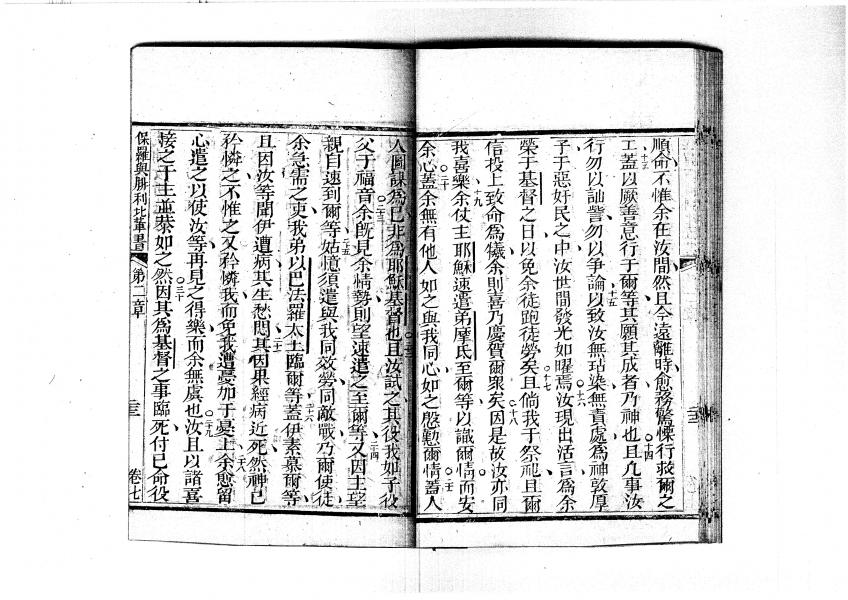 順命不惟余在汝間然且今遠離時愈務驚慄行救爾之
十三
工蓋以厥善意行于爾等其願其成者乃神也且凡事汝
十四
行勿以訕讟勿以爭論以致汝無玷染無責處為神敦厚
十五
子于惡奸民之中汝世間發光如曜焉汝現出活言為余
十六
榮于基督之日以免余徒跑徒勞矣且倘我于祭祀且爾
十七
信役上致命為犧余則喜乃慶賀爾眾矣因是故汝亦同
十八
我喜樂余仗主耶穌速遣弟摩氐至爾等以識爾情而安
十九
余心蓋余無有他人如之與我同心如之慇懃爾情蓋人
二十
人圖謀為己非為耶穌基督也且汝試之其役我如子役
父于福音余既見余情勢則望速遣之至爾等又因主望
二十三
二十四
親自速到爾等姑憶須遣與我同效勞同敵戰乃爾使徒
二五
余急需之吏我弟以巴法羅太土臨爾等蓋伊素慕爾等
二十六
且因汝等聞伊遭病其生愁悶其因果經病近死然神已
矜憐之不惟之又矜憐我而免我遭憂加于憂上余愈留
二十八
心遣之以使汝等再見之得樂而余無虞也汝且以諸喜
二十九
接之于主並恭如之然因其為基督之事臨死付己命役
三十
保羅與腓利比輩書
第二章
卷七